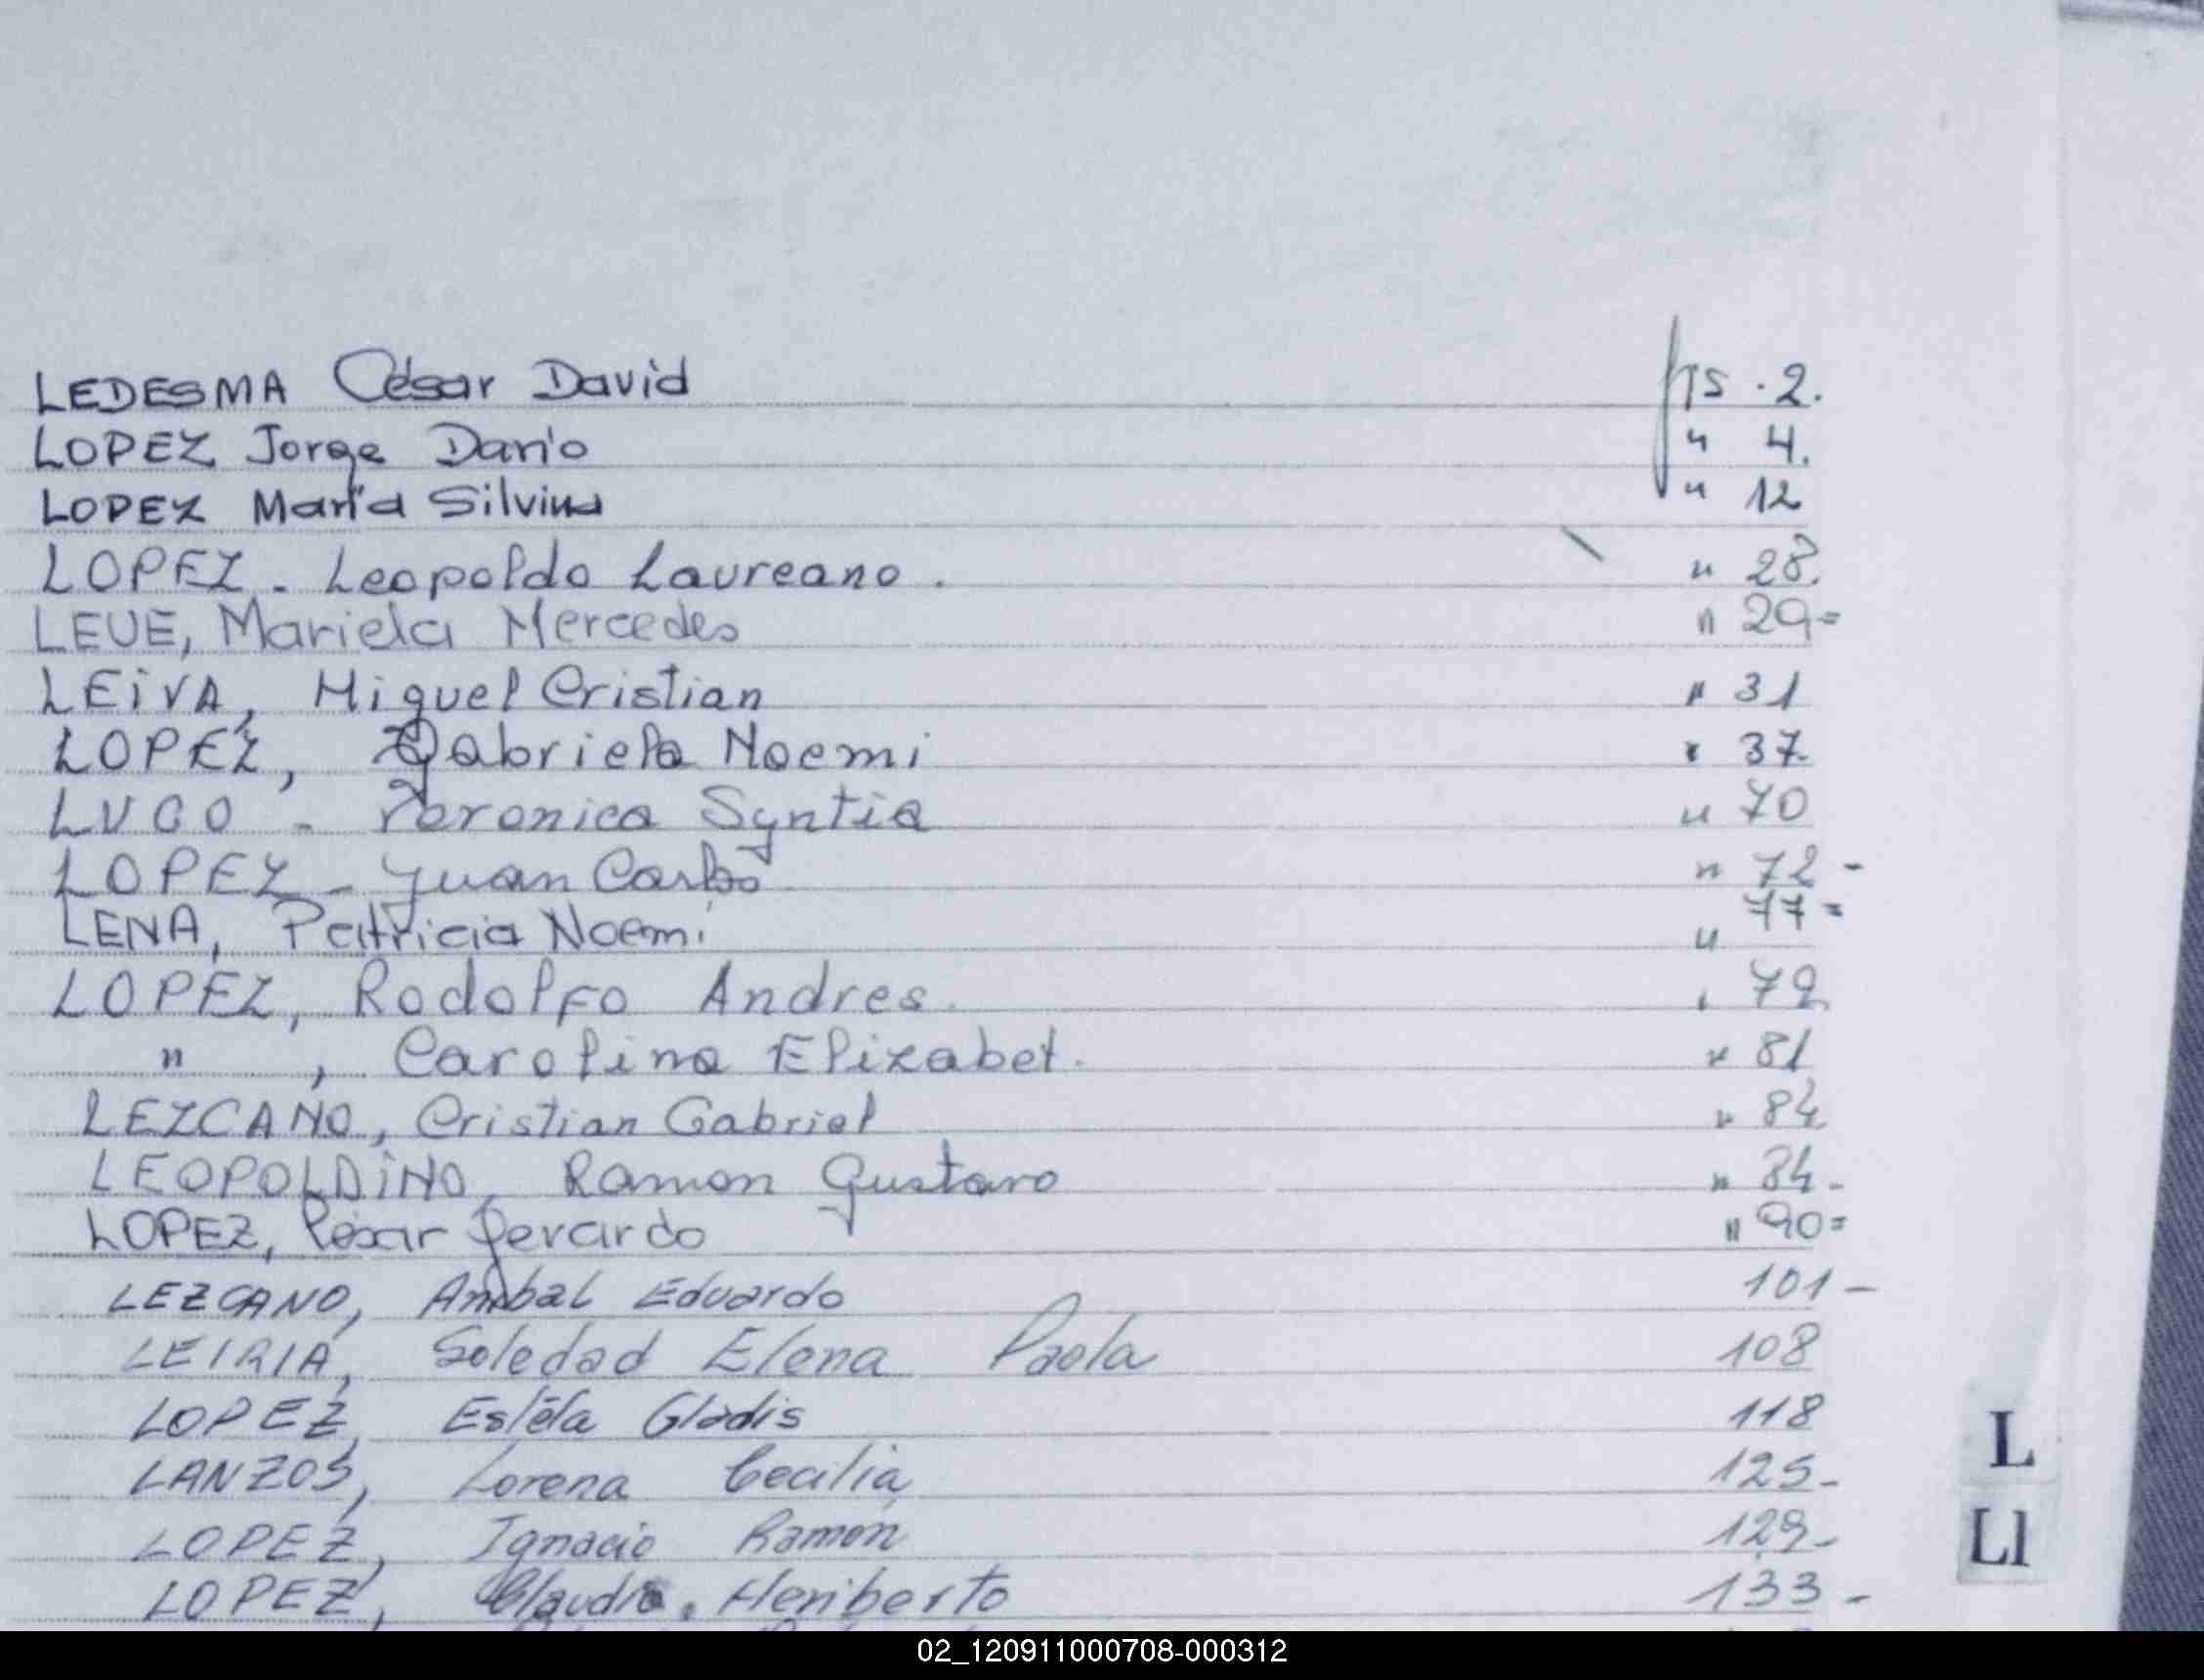 LEDESMA César David fs. 2.
LOPEZ Jorge Darío " 4.
LOPEZ María Silvina " 12
LOPEZ - Leopoldo Laureano. " 28.
LEUE, Mariela Mercedes " 29=
LEiVA, Miguel Cristian " 31
LOPEZ, Gabriela Noemi " 37.
LUGO - Veronica Syntia " 70
LOPEZ - Juan Carlos " 72 -
LENA, Patricia Noemi " 77=
LOPEZ, Rodolfo Andres. " 79
" , Carolina Elizabet. " 81
LEZCANO, Cristian Gabriel " 84
LEOPOLDiNO, Ramon Gustavo " 84-
LOPEZ, César Gerardo " 90=
LEZCANO, Anibal Eduardo 101 -
LEIRIA, Soledad Elena Paola 108
LOPEZ, Estela Gladis 118
LANZOS, Lorena Cecilia 125-
LOPEZ, Ignacio Ramón 129-
LOPEZ, Claudio Heriberto 133 -
L
Ll
02_120911000708-000312